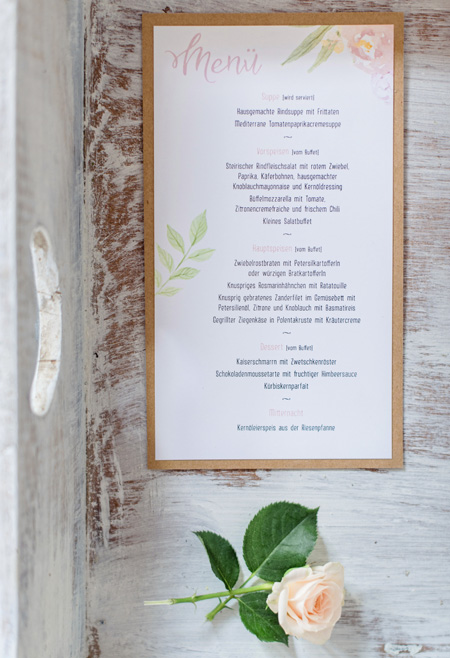 Menü
Suppe (wird serviert)
Hausgemachte Rindsuppe mit Frittaten
Mediterrane Tomatenpaprikacremesuppe
~
Vorspeisen (vom Buffet)
Steirischer Rindfleischsalat mit rotem Zwiebel,
Paprika, Käferbohnen, hausgemachter
Knoblauchmayonnaise und Kernöldressing
Büffelmozzarella mit Tomate,
Zitronencremefraiche und frischem Chili
Kleines Salatbuffet
~
Hauptspeisen (vom Buffet)
Zwiebelrostbraten mit Petersilkartofferln
oder würzigen Bratkartofferln
Knuspriges Rosmarinhähnchen mit Ratatouille
Knusprig gebratenes Zanderfilet im Gemüsebett mit
Petersilienöl, Zitrone und Knoblauch mit Basmatireis
Gegrillter Ziegenkäse in Polentakruste mit Kräutercreme
~
Dessert (vom Buffet)
Kaiserschmarrn mit Zwetschkenröster
Schokoladenmoussetarte mit fruchtiger Himbeersauce
Kürbiskernparfait
~
Mitternacht
Kernöleierspeis aus der Riesenpfanne